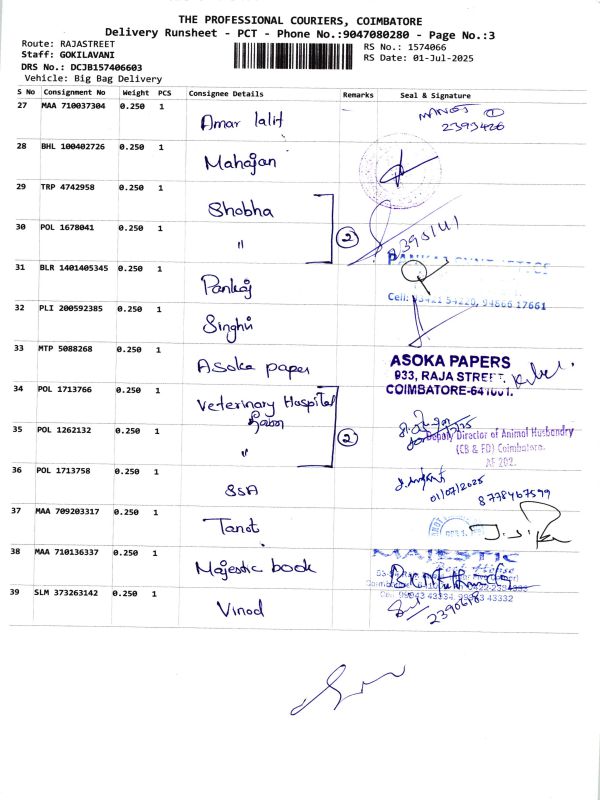 THE PROFESSIONAL COURIERS, COIMBATORE
Delivery Runsheet - PCT - Phone No.:9047080280 - Page No.:3
Route: RAJASTREET
RS No.: 1574066
Staff: GOKILAVANI
RS Date: 01-Jul-2025
DRS No.: DCJB157406603
Vehicle: Big Bag Delivery
S No Consignment No Weight PCS Consignee Details Remarks Seal & Signature
27 MAA 710037304 0.250 1 Amar lalit
2393426
28 BHL 100402726 0.250 1 Mahajan
29 TRP 4742958 0.250 1 Shobha
30 POL 1678041 0.250 1 " 2
31 BLR 1401405345 0.250 1 Pankaj
Cell: 94866 17661
32 PLI 200592385 0.250 1 Singhvi
33 MTP 5088268 0.250 1 Asoka paper
ASOKA PAPERS
933, RAJA STREET,
COIMBATORE-641001.
34 POL 1713766 0.250 1 Veterinary Hospital
35 POL 1262132 0.250 1 " 2
Deputy Director of Animal Husbandry
(CB & FD) Coimbatore.
36 POL 1713758 0.250 1 SSA
01/07/2025 8778467599
37 MAA 709203317 0.250 1 Tanot
38 MAA 710136337 0.250 1 Majestic book
MAJESTIC
Book House
39 SLM 373263142 0.250 1 Vinod
2390618